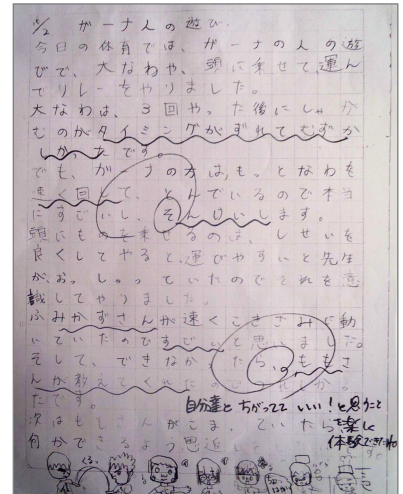 11/2 ガーナ人の遊び
今日の体育では、ガーナの人の遊
びで、大なわや、頭に乗せて運ん
でリレーをやりました。
大なわは、3回やった後にしゃが
むのがタイミングがずれてむずか
しかったです。
でも、ガーナの方は、もっとなわを
速く回して、とんでいるので本当
にすごいし、そんけいします。
頭にものを乗せるのは、しせいを
良くしてやると、運びやすいと先生
が、おっしゃっていたのでそれを意
識してやりました。
ふみかずさんが速くこきざみに動
いていたのですごいと思いました。
そして、できなかったら、ももさ
んが教えてくれたので
たです。
自分達とちがってていい!と思うこと
楽しく
体験できたね
次はもしさんがこまっていたら
何かできるよう
くる。